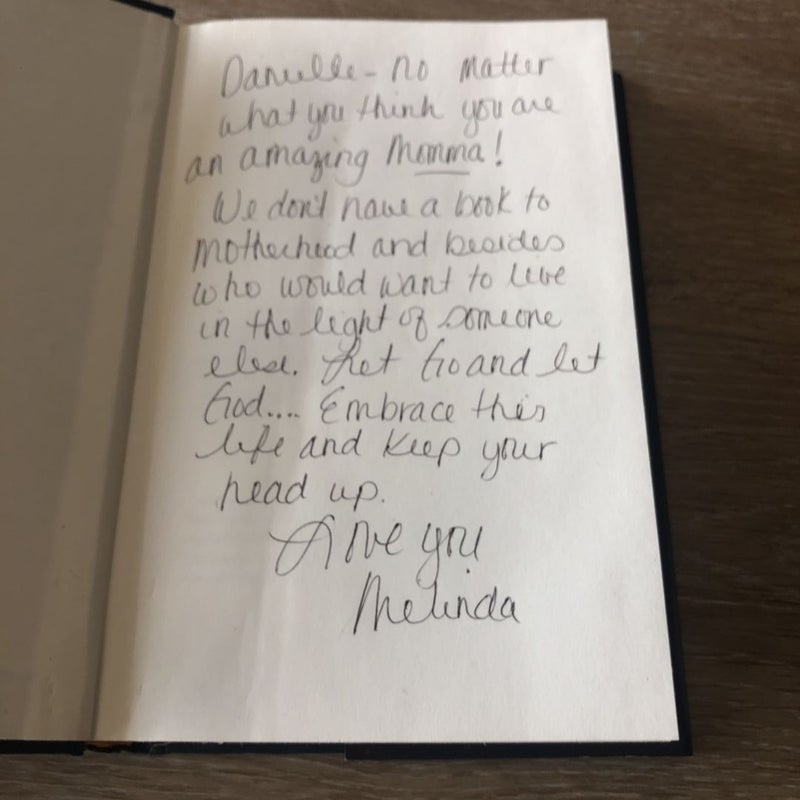 Danielle - no matter
what you think you are
an amazing Momma!
We don't have a book to
motherhood and besides
who would want to live
in the light of someone
else. Let Go and let
God.... Embrace this
life and keep your
head up.
Love you
Melinda